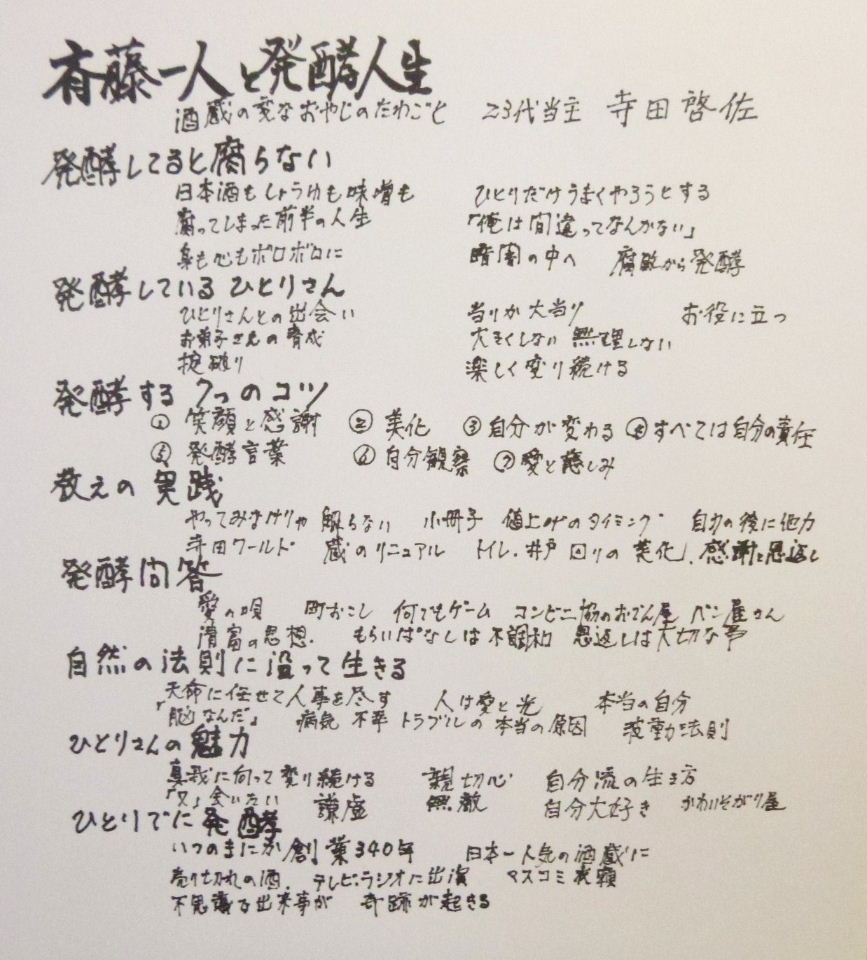 斉藤一人と発酵人生
酒蔵の変なおやじのたわごと 23代当主 寺田啓佐
発酵してると腐らない
日本酒もしょうゆも味噌も ひとりだけうまくやろうとする
腐ってしまった前半の人生 「俺は間違ってなんかない」
身も心もボロボロに 暗闇の中へ 腐敗から発酵
発酵しているひとりさん
ひとりさんとの出会い 当りか大当り お役に立つ
お弟子さんの育成 大きくしない 無理しない
掟破り 楽しく変り続ける
発酵する7つのコツ
① 笑顔と感謝 ② 美化 ③ 自分が変わる ④ すべては自分の責任
⑤ 発酵言葉 ⑥ 自分観察 ⑦ 愛と慈しみ
教えの実践
やってみなけりゃ解らない 小冊子 値上げのタイミング 自力の後に他力
寺田ワールド 蔵のリニュアル トイレ、井戸回りの美化、感謝と恩返し
発酵問答
愛の唄 町おこし 何でもゲーム コンビニ脇のおでん屋 パン屋さん
清富の思想. もらいぱなしは不調和 恩返しは大切な事
自然の法則に沿って生きる
天命に任せて人事を尽す 人は愛と光 本当の自分
「脳なんだ」 病気 不幸 トラブルの本当の原因 波動の法則
ひとりさんの魅力
真我に向って変り続ける 親切心 自分流の生き方
「又」会いたい 謙虚 無敵 自分大好き かわいそがり屋
ひとりでに発酵
いつのまにか創業340年 日本一人気の酒蔵に
売り切れの酒. テレビ・ラジオに出演 マスコミ依頼
不思議な出来事が 奇跡が起きる